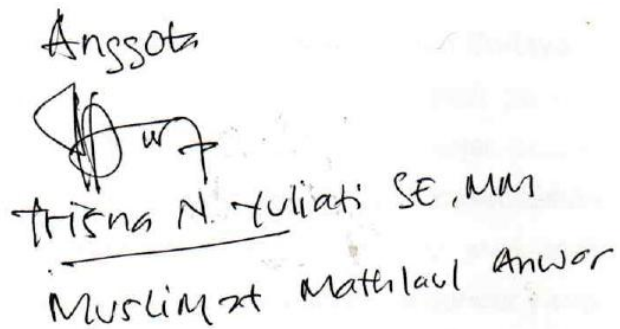 Anggota
Trisna N. Yuliati SE, MM
Muslimat Mathlaul Anwar